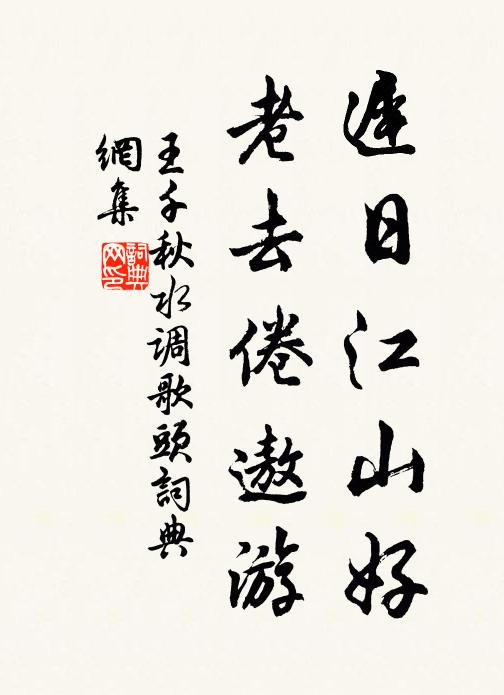 遲日江山好
老去倦遨游
王千秋水调歌頭詞典
網集
詞典网印